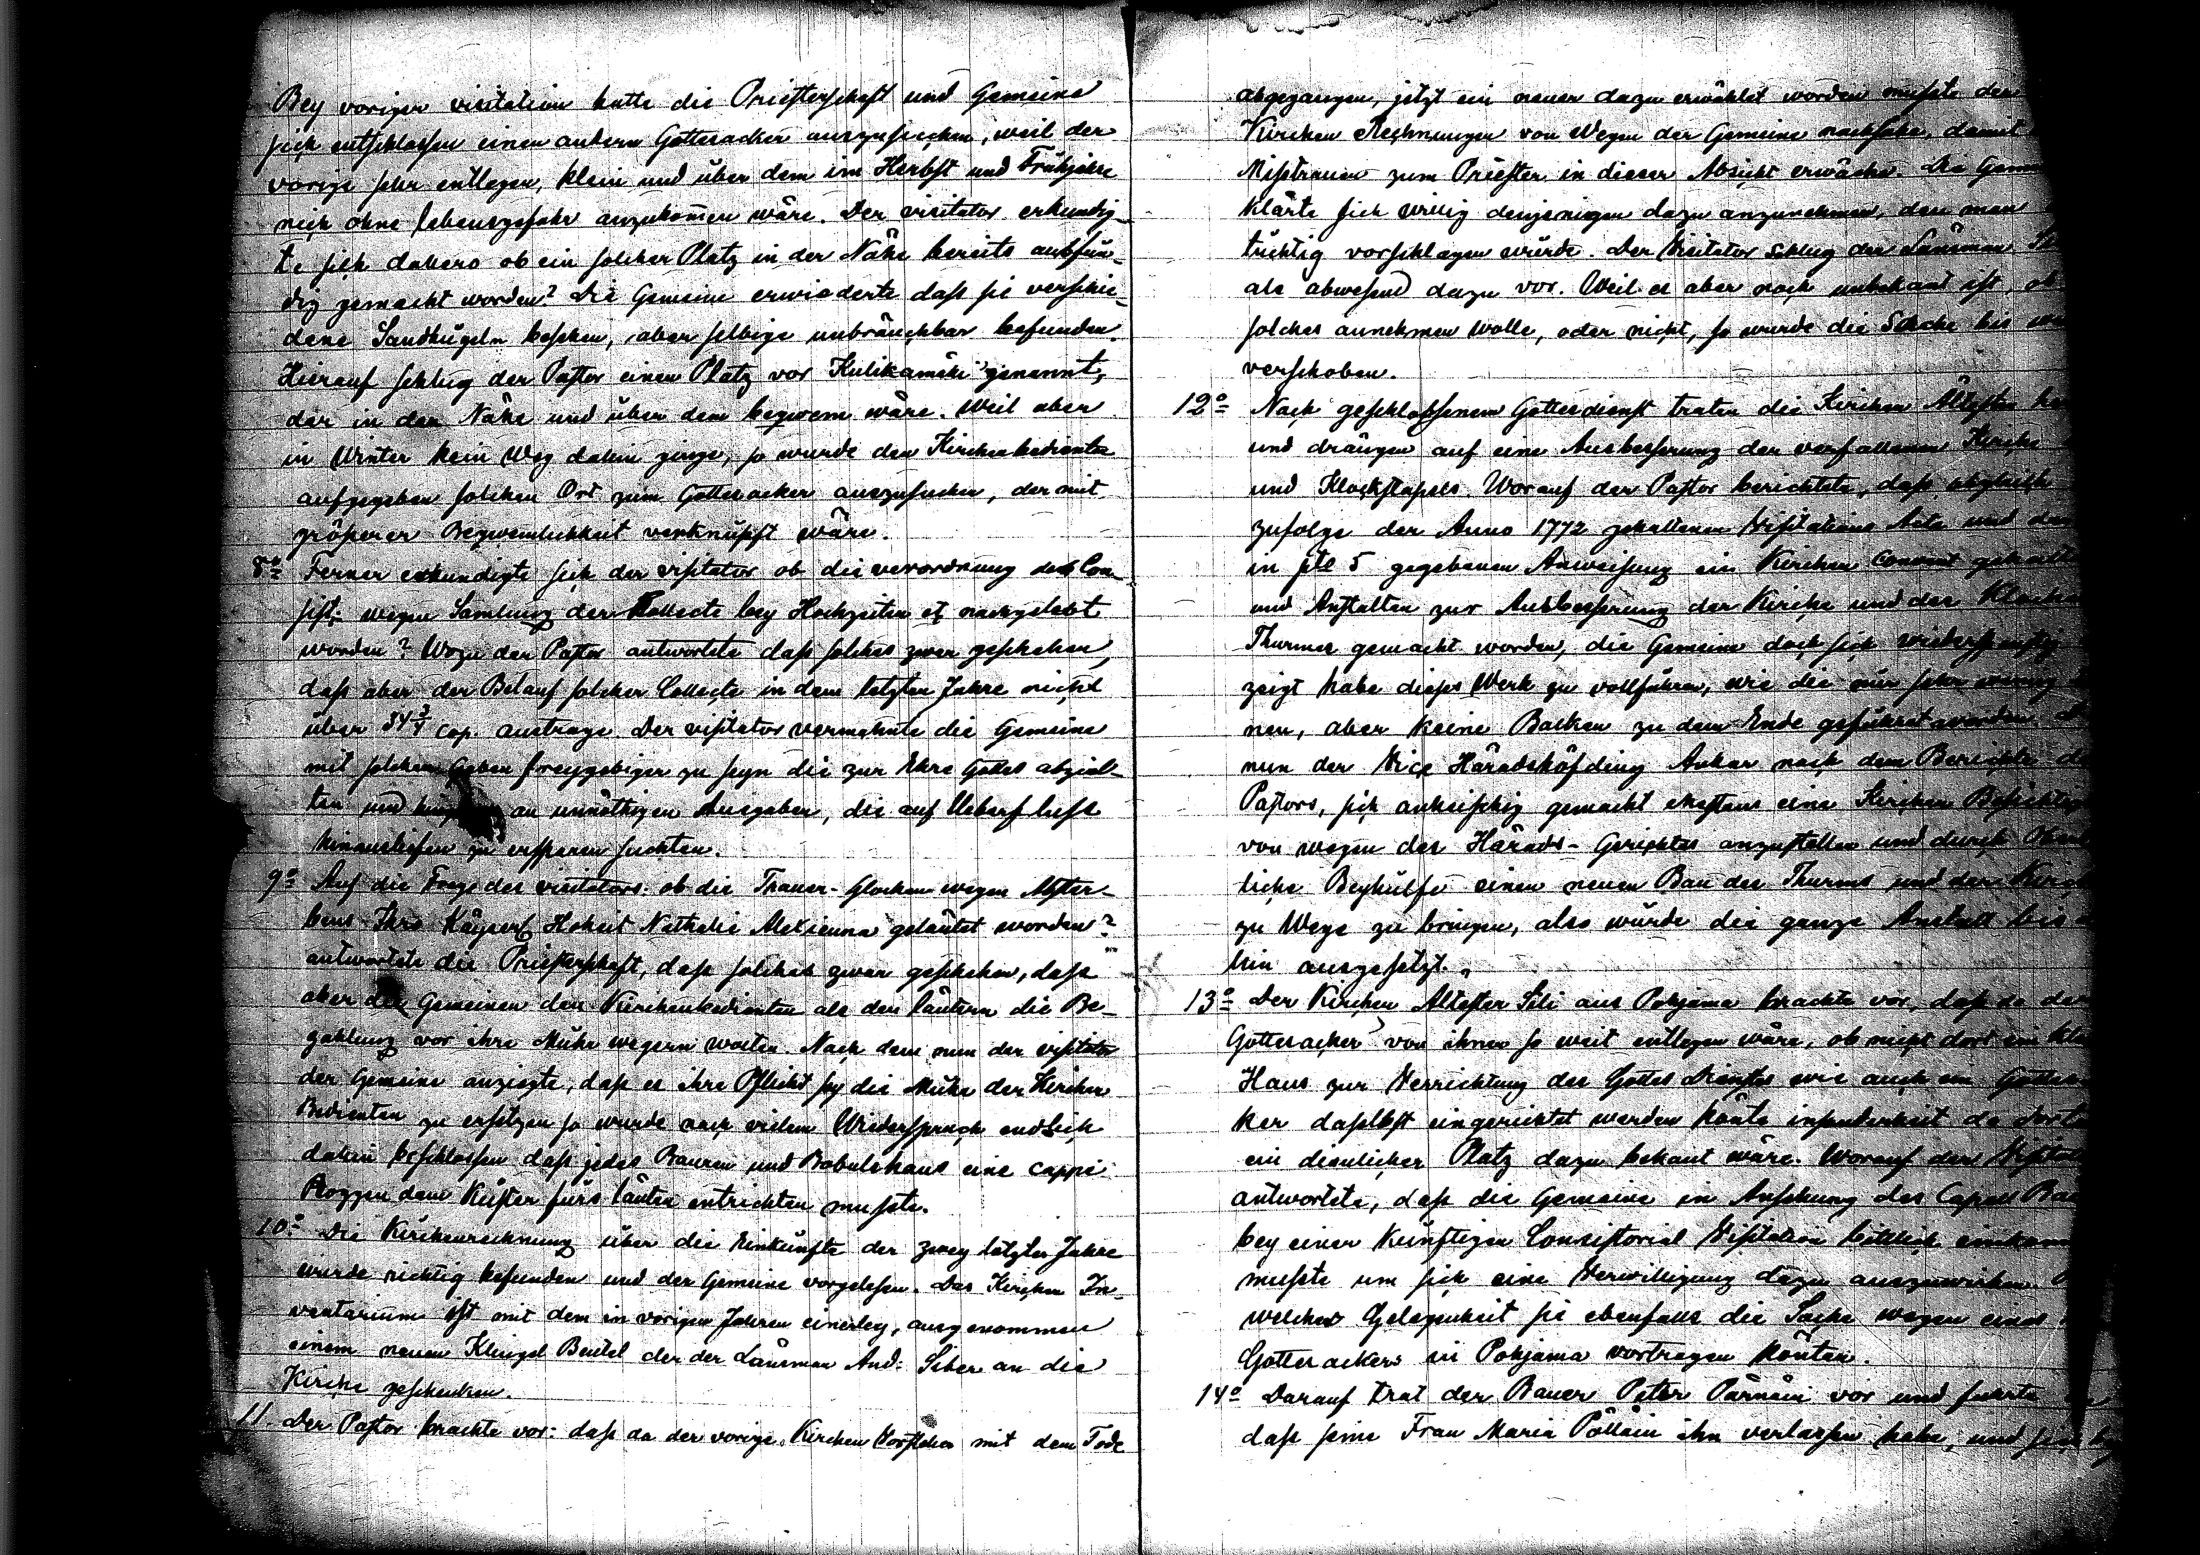 Bey voriger visitation hatte die Priesterschaft und Gemeine
sich entschlossen einen andern Gottesacker auszusuchen, weil der
vorige sehr entlegen, klein und über dem im Herbst und Frühjahre
nich ohne lebensgefahr anzukomen wäre. Der visitator erkundig-
te sich dahero ob ein solcher Platz in der Nähe bereits ausfün-
dig gemacht worden? Die Gemeine erwiederte dass sie verschie-
dene Sandhügeln besehen, aber selbige unbräuchbar befunden.
Hierauf schlug der Pastor einen Platz vor Kulikamäki genannt,
der in der Nähe und über dem beqwem wäre. Weil aber
in Winter kein Weg dahin ginge, so wurde den Kirchenbedienten
aufgegeben solchen Ort zum Gottesacker auszusuchen, der mit
grösserer Beqwemlichkeit verknüpft wäre.
8º Ferner erkundigte sich der visitator ob die verordnung des Con-
sist: wegen Samlung der Kollecte bey Hochzeiten nachgelebt
worden? Wozu der Pastor antwortete dass solches zwar geschehen,
dass aber der Belauf solcher Collecte in dem letzten Jahre nicht
über 34 3/4 cop. austrage. Der visitator vermahnte die Gemeine
mit solchen Gaben freygebiger zu seyn die zur Ehre Gottes abziel-
ten und an unnöthigen Ausgaben, die auf Ueberfluss
hinausliefen zu ersparen suchten.
9º Auf die Frage des visitators: ob die Trauer-Glocken wegen Abster-
bens Ihro Kayserl Hoheit Nathalie Alexienna geläutet worden?
antwortete die Priesterschaft, dass solches zwar geschehen, dass
aber die Gemeinen den Kirchenbedienten als den läutern die Be-
zahlung vor ihre Mühe wegern wolten. Nach dem nun der visitator
der Gemeine anzeigte, dass es ihre Pflicht sey die Mühe der Kirchen
Bedienten zu ersetzen so wurde nach vielem Wiederspruch endlich
dahin beschlossen dass jedes Bauren und Bobulshaus eine cappe
Roggen dem Küster fürs läuten entrichten musste.
10º Die Kirchenrechnung über die Einkünfte der zwey letzten Jahre
wurde richtig befunden und der Gemeine vorgelesen. Das Kirchen In-
ventarium ist mit dem in vorigen Jahren einerley, ausgenommen
einem neuen Klingel Beutel der der Länsman And: Siber an die
Kirche geschenken.
11. Der Pastor brachte vor: dass da der vorige Kirchen Vorsteher mit dem Tode
abgegangen, jetzt ein neuer dazu erwählet worden müsste der
Kirchen Rechnungen von Wegen der Gemeine nachsähe, damit
Misstrauen zum Priester in dieser Absicht erwächse. Die Gem
klärte sich willig denjenigen dazu anzunehmen, den man
tüchtig vorschlagen würde. Der Visitator schlug der Länsman
als abwesend dazu vor. Weil es aber noch unbekant ist, ob
solches annehmen wolle, oder nicht, so wurde die Sache bis
verschoben.
12º Nach geschlossenem Gottesdienst traten die Kirchen Ältesten
und drängen auf eine Ausbesserung der verfallenen Kirche
und Klockstapels. Worauf der Pastor berichtete, dass obgleich
zufolge der Anno 1772 gehaltenen Visitations Acta und
in pte 5 gegebenen Anweisung ein Kirchen Convent gehalten
und Anstalten zur Ausbesserung der Kirche und der Klocken
Thurmes gemacht worden, die Gemeine doch sich wiederspenstig
zeigt habe dieses Werk zu vollführen, wie die nur sehr wenig
nen, aber keine Balken zu dem Ende geführet worden.
nun der Vice Häradshöfding Ankar nach dem Berichte
Pastors, sich anheischig gemacht ehestens eine Kirchen Besichtig
von wegen des Härads-Gerichtes anzustellen und durch
liche Beyhülfe einen neuen Bau des Thurms und der Kirche
zu Wege zu bringen, also wurde die ganze Anstalt bis
hin ausgesetzt.
13º Der Kirchen Altester Sili aus Pohjama brachte vor, dass da der
Gottesacker von ihnen so weit entlegen wäre, ob nicht dort ein
Haus zur Verrichtung des Gottes Dienstes wie auch ein Gottes
ker daselbst eingerichtet werden könte insonderheit da
ein dienlicher Platz dazu bekant wäre. Worauf der Visitator
antwortete, dass die Gemeine in Ansehung des Capell Bau
bey einer künftigen Consistorial Visitation bittlich einkom
müsste um sich eine Verwilligung dazu auszuwirken.
welcher Gelegenheit sie ebenfals die Sache wegen eines
Gottesackers in Pohjama vortragen könten.
14º Darauf trat der Bauer Peter Pärnäin vor und
dass seine Frau Maria Pölläin ihn verlassen habe, und